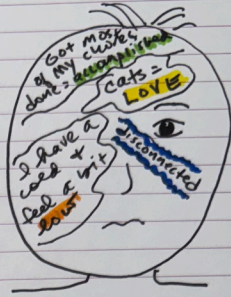 Got most
of my chores
done = accomplished
cats =
LOVE
I have a
cold +
feel a bit
low
disconnected